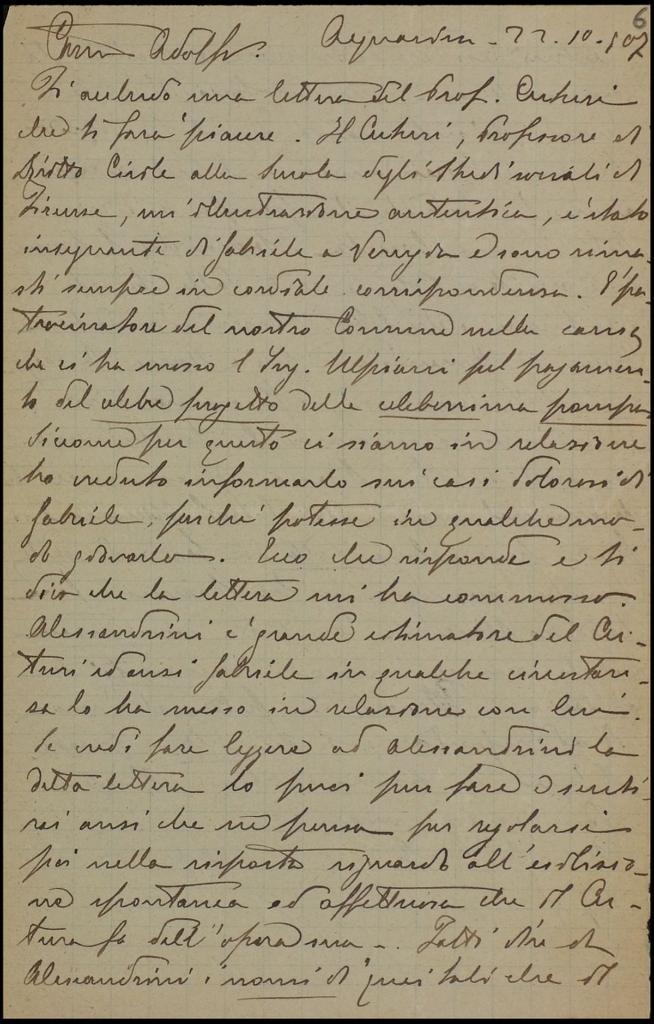 6
Caro Adolfo. Acquaviva - 22.10.907
Ti acchiudo una lettera del Prof. Cuturi
che ti farà piacere. Il Cuturi, Professore di
Diritto Civile alla Scuola degli Studi sociali di
Firenze, un'illustrazione autentica, è stato
insegnante di Gabriele a Perugia e sono rima-
sti sempre in cordiale corrispondenza. È pa-
trocinatore del nostro Comune nella causa
che ci ha mosso l'Ing. Ulpiani pel pagamen-
to del celebre progetto della celeberrima pompa
Siccome per questo ci siamo in relazione
ho creduto informarlo sui casi dolorosi di
Gabriele, perché potesse in qualche mo-
do giovarlo. Ecco che risponde e ti
dico che la lettera mi ha commosso.
Alessandrini è grande estimatore del Cu-
turi ed anzi Gabriele in qualche circostan-
za lo ha messo in relazione con lui.
Se credi fare leggere ad Alessandrini la
detta lettera lo puoi pur fare e senti-
rai anzi che ne pensa per regolarsi
poi nella risposta riguardo all'esibizio-
ne spontanea ed affettuosa che il Cu-
turi fa dell'opera sua -. Fatti dire da
Alessandrini i nomi di quei tali che il